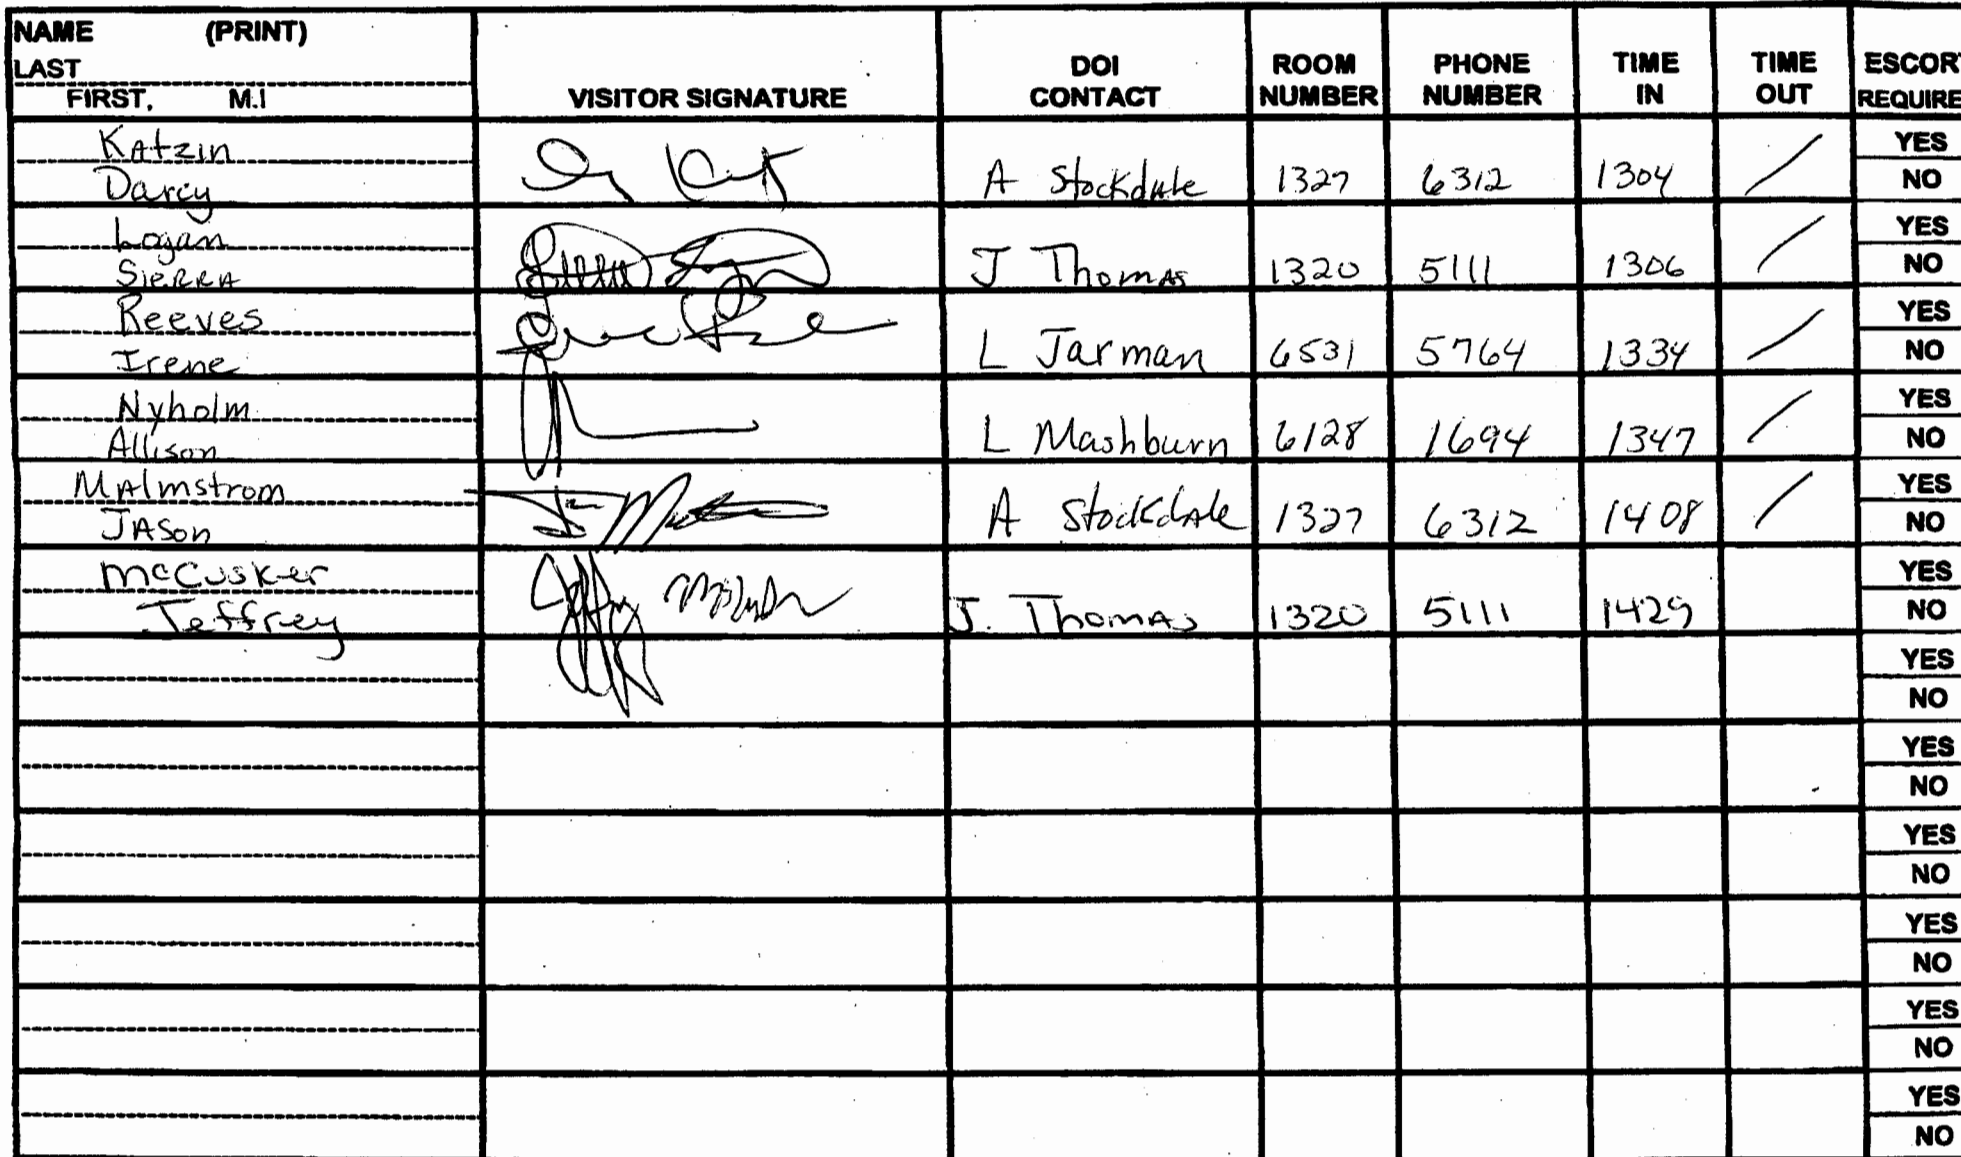 NAME (PRINT)
LAST
FIRST, M.I
VISITOR SIGNATURE
DOI
CONTACT
ROOM
NUMBER
PHONE
NUMBER
TIME
IN
TIME
OUT
ESCOR
REQUIRE
Katzin
Darcy
A Stockdale 1327 6312 1304 /
YES
NO
Logan
Sierra
J Thomas 1320 5111 1306 /
YES
NO
Reeves
Irene
L Jarman 6531 5764 1334 /
YES
NO
Nyholm
Allison
L Mashburn 6128 1694 1347 /
YES
NO
Malmstrom
Jason
A Stockdale 1327 6312 1408 /
YES
NO
McCusker
Jeffrey
J. Thomas 1320 5111 1429
YES
NO
YES
NO
YES
NO
YES
NO
YES
NO
YES
NO
YES
NO